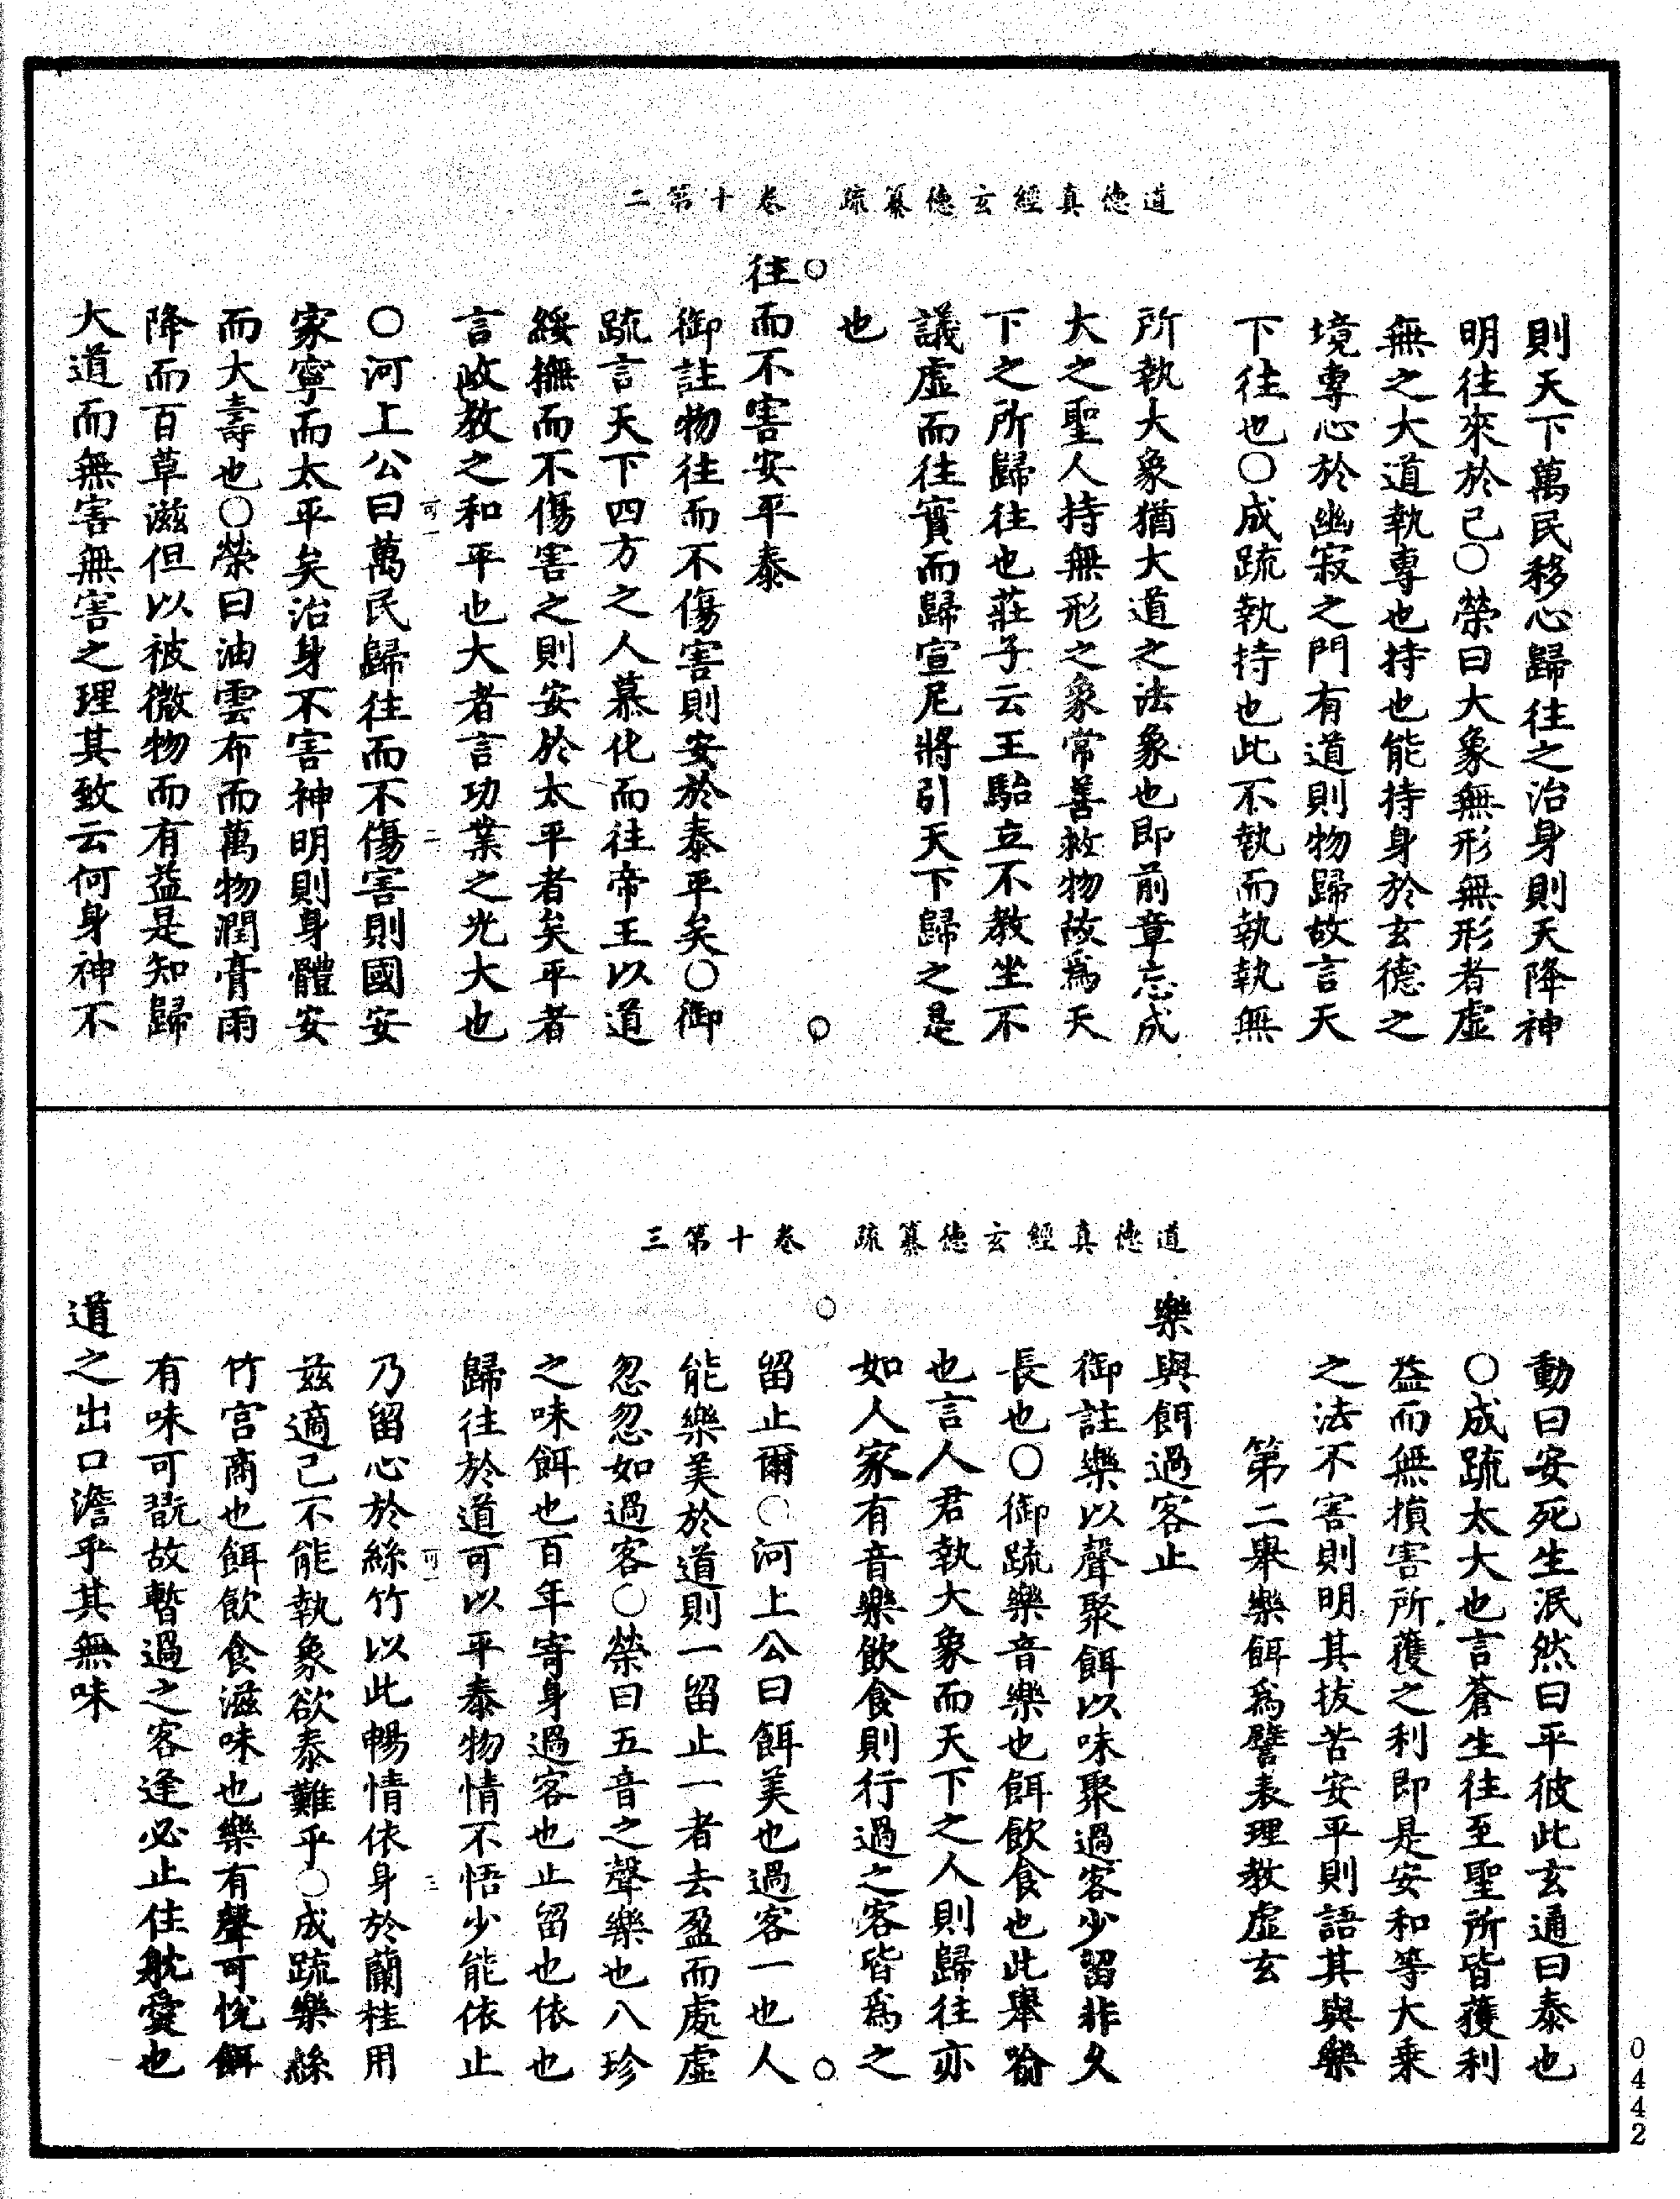 道德真經玄德纂疏　卷十第二
則天下萬民移心歸往之治身則天降神
明往來於己○榮曰大象無形無形者虛
無之大道執專也持也能持身於玄德之
境專心於幽寂之門有道則物歸故言天
下往也○成疏執持也此不執而執執無
所執大象猶大道之法象也即前章忘成
大之聖人持無形之象常善救物故為天
下之所歸往也莊子云王駘立不教坐不
議虛而往實而歸宣尼將引天下歸之是
也
往而不害安平泰
御註物往而不傷害則安於泰平矣○御
疏言天下四方之人慕化而往帝王以道
綏撫而不傷害之則安於太平者矣平者
言政教之和平也大者言功業之光大也
可一　二
○河上公曰萬民歸往而不傷害則國安
家寧而太平矣治身不害神明則身體安
而大壽也○榮曰油雲布而萬物潤膏雨
降而百草滋但以被微物而有益是知歸
大道而無害無害之理其致云何身神不
道德真經玄德纂疏　卷十第三
動曰安死生泯然曰平彼此玄通曰泰也
○成疏太大也言蒼生往至聖所皆獲利
益而無損害所獲之利即是安和等大乘
之法不害則明其拔苦安平則語其與樂
第二舉樂餌為譬表理教虛玄
樂與餌過客止
御註樂以聲聚餌以味聚過客少留非久
長也○御疏樂音樂也餌飲食也此舉喻
也言人君執大象而天下之人則歸往亦
如人家有音樂飲食則行過之客皆為之
留止爾○河上公曰餌美也過客一也人
能樂美於道則一留止一者去盈而處虛
忽忽如過客○榮曰五音之聲樂也八珍
之味餌也百年寄身過客也止留也依也
歸往於道可以平泰物情不悟少能依止
可一　三
乃留心於絲竹以此暢情依身於蘭桂用
茲適己不能執象欲泰難乎○成疏樂絲
竹宮商也餌飲食滋味也樂有聲可悅餌
有味可翫故暫過之客逢必止住躭愛也
道之出口澹乎其無味
0442